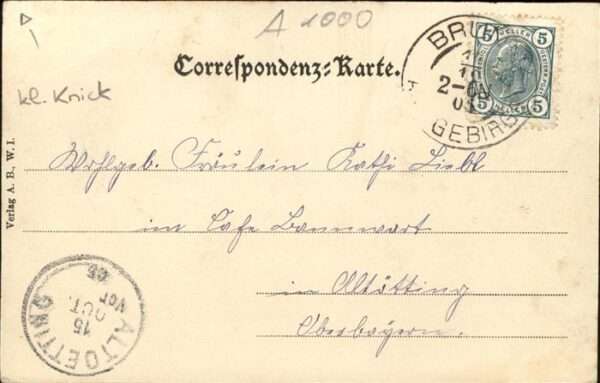 A 1000
Correspondenz-Karte.
kl. Knick
Verlag A. B., W. I.
5 5
5 5
BRU
2-
03
GEBIRG
Wohlgeb. Fräulein Kathi Liebl
im Cafe Bannwart
in Altötting
Oberbayern.
ALTOETTING
15
OCT.
VOR
03